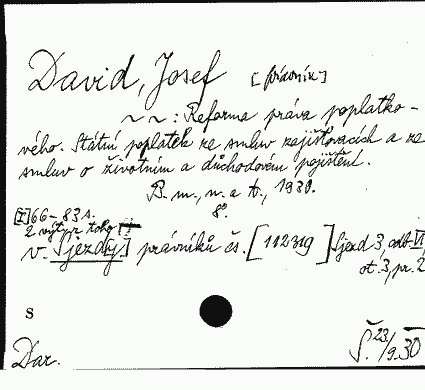 David, Josef [právník]
~ ~ : Reforma práva poplatko-
vého. Státní poplatek ze smluv zajišťovacích a ze
smluv o životním a důchodovém pojištění.
B. m., n. a t., 1930.
8°.
[I] 66-83 s.
2 výtyz
v. Sjezdy.] právníků čs. [112319] Sjezd 3, odb. VI,
ot. 3, pr. 2
S
Dar.
Š. 23/9.30